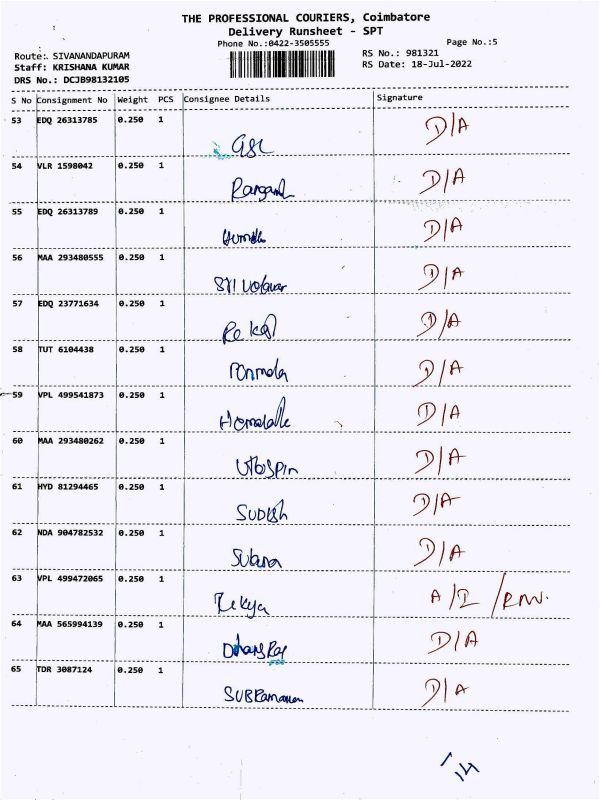 THE PROFESSIONAL COURIERS, Coimbatore
Delivery Runsheet - SPT
Phone No.:0422-3505555
Page No.:5
Route:. SIVANANDAPURAM
RS No.: 981321
Staff: KRISHANA KUMAR
RS Date: 18-Jul-2022
DRS No.: DCJB98132105
S No Consignment No Weight PCS Consignee Details Signature
53 EDQ 26313785 0.250 1 D/A
GSL
54 VLR 1598042 0.250 1 D/A
55 EDQ 26313789 0.250 1 D/A
56 MAA 293480555 0.250 1 D/A
57 EDQ 23771634 0.250 1 D/A
58 TUT 6104438 0.250 1 D/A
59 VPL 499541873 0.250 1 D/A
60 MAA 293480262 0.250 1 D/A
61 HYD 81294465 0.250 1 D/A
SUDISh
62 NDA 904782532 0.250 1 D/A
63 VPL 499472065 0.250 1
64 MAA 565994139 0.250 1 D/A
DhansRaj
65 TDR 3087124 0.250 1 D/A
SUBRamanian